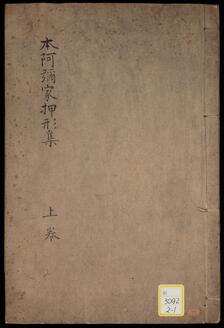 本阿彌家押形集
上卷
3092
2-1